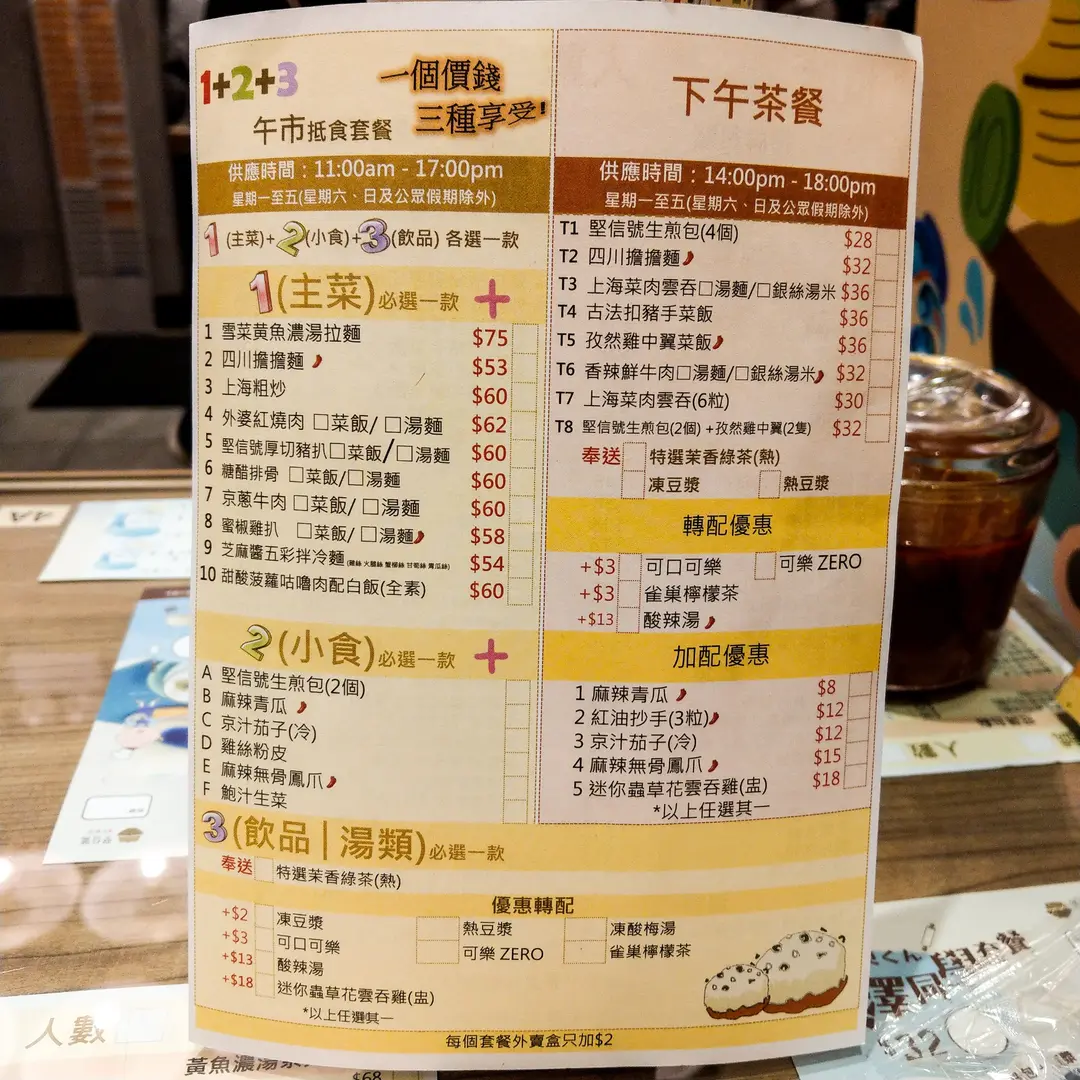 1+2+3
一個價錢
三種享受!
午市抵食套餐
供應時間：11:00am - 17:00pm
星期一至五(星期六、日及公眾假期除外)
1 (主菜)+2(小食)+3(飲品) 各選一款
1(主菜)必選一款 +
1 雪菜黃魚濃湯拉麵 $75
2 四川擔擔麵 $53
3 上海粗炒 $60
4 外婆紅燒肉 □菜飯/ □湯麵 $62
5 堅信號厚切豬扒□菜飯/□湯麵 $60
6 糖醋排骨 □菜飯/□湯麵 $60
7 京蔥牛肉 □菜飯/ □湯麵 $60
8 蜜椒雞扒 □菜飯/ □湯麵 $58
9 芝麻醬五彩拌冷麵(雞絲 火腿絲 蟹柳絲 甘筍絲 青瓜絲) $54
10 甜酸菠蘿咕嚕肉配白飯(全素) $60
2(小食)必選一款 +
A 堅信號生煎包(2個)
B 麻辣青瓜
C 京汁茄子(冷)
D 雞絲粉皮
E 麻辣無骨鳳爪
F 鮑汁生菜
3(飲品|湯類)必選一款
奉送 特選茉香綠茶(熱)
優惠轉配
+$2 凍豆漿 熱豆漿 凍酸梅湯
+$3 可口可樂 可樂 ZERO 雀巢檸檬茶
+$13 酸辣湯
+$18 迷你蟲草花雲吞雞(盅)
*以上任選其一
每個套餐外賣盒只加$2
下午茶餐
供應時間：14:00pm - 18:00pm
星期一至五(星期六、日及公眾假期除外)
T1 堅信號生煎包(4個) $28
T2 四川擔擔麵 $32
T3 上海菜肉雲吞□湯麵/□銀絲湯米 $36
T4 古法扣豬手菜飯 $36
T5 孜然雞中翼菜飯 $36
T6 香辣鮮牛肉□湯麵/□銀絲湯米 $32
T7 上海菜肉雲吞(6粒) $30
T8 堅信號生煎包(2個) +孜然雞中翼(2隻) $32
奉送 特選茉香綠茶(熱)
凍豆漿 熱豆漿
轉配優惠
+$3 可口可樂 可樂 ZERO
+$3 雀巢檸檬茶
+$13 酸辣湯
加配優惠
1 麻辣青瓜 $8
2 紅油抄手(3粒) $12
3 京汁茄子(冷) $12
4 麻辣無骨鳳爪 $15
5 迷你蟲草花雲吞雞(盅) $18
*以上任選其一
4A
人數
人數
黃魚濃湯
$68